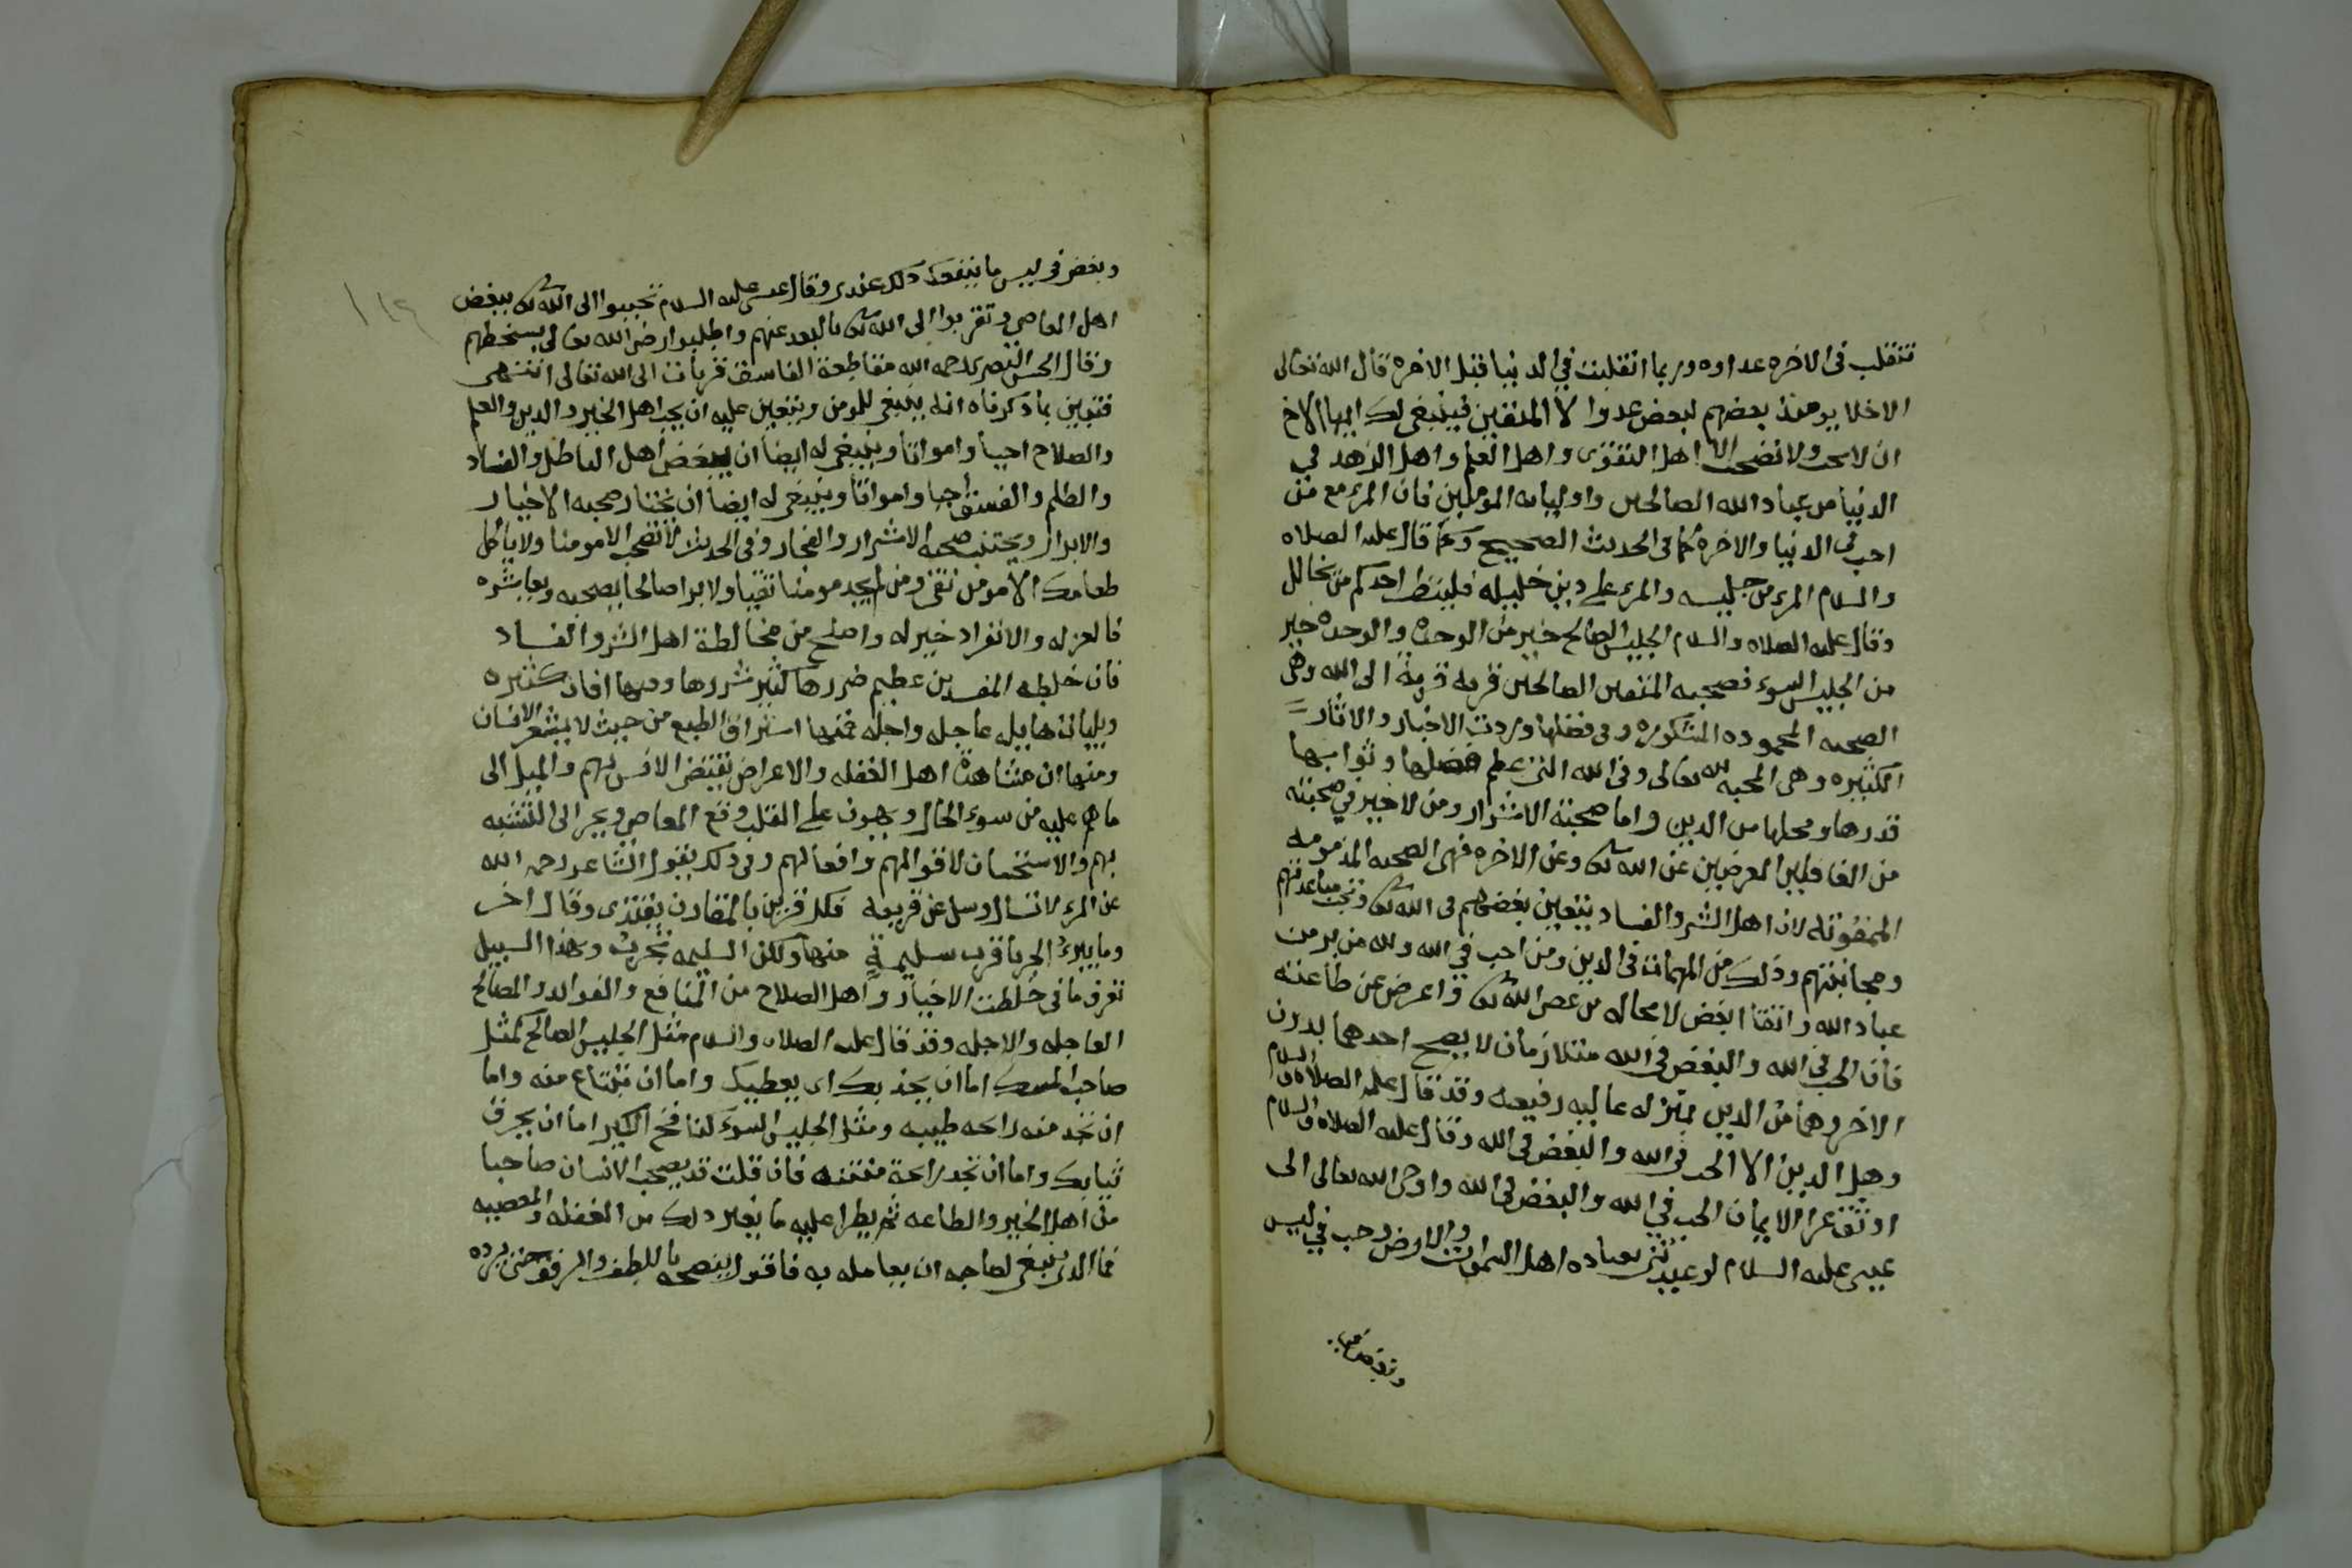 تنقلب في الاخره عداوه وربما انقلبت في الدنيا قبل الاخره قال الله تعالى
الاخلا يومئذ بعضهم لبعض عدوا الا المتقين فينبغي لك ايها الاخ
ان لا تحب ولا تصحب الا اهل التقوى واهل العلم واهل الزهد في
الدنيا من عباد الله الصالحين واوليائه المومنين فان المرء مع من
احب في الدنيا والاخرة كما في الحديث الصحيح وكما قال عليه الصلاه
والسلام المرء من جليسه والمرء على دين خليله فلينظر احدكم من يخالل
وقال عليه الصلاه والسلام الجليس الصالح خير من الوحده والوحده خير
من الجليس السوء فصحبه المتقين الصالحين قربه الى الله وهي
الصحبه المحموده المشكوره وفي فضلها وردت الاخبار والاثار
الكثيره وهي المحبه لله تعالى وفي الله التي عظم فضلها وثوابها
قدرها ومحلها من الدين واما صحبة الاشرار ومن لا خير في صحبته
من الغافلين المعرضين عن الله تعالى وعن الاخره فهي الصحبه المذمومه
الممقوته لان اهل الشر والفساد يتعين بغضهم في الله تعالى وتجب مباعدتهم
ومجانبتهم وذلك من المهمات في الدين ومن احب في الله وله من بر من
عباد الله واتقا ابغض لا محاله من عصى الله تعالى واعرض عن طاعته
فان الحب في الله والبغض في الله متلازمان لا يصح احدهما بدون
الاخر وهما من الدين بمنزله عاليه رفيعه وقد قال عليه الصلاه والسلام
وهل الدين الا الحب في الله والبغض في الله وقال عليه الصلاه والسلام
اوثق عرا الايمان الحب في الله والبغض في الله واوحى الله تعالى الى
عيسى عليه السلام لو عبدتني بعباده اهل السموات والارض وحب في ليس
وبغض في ليس ما ينفعك ذلك عندي وقال عيسى عليه السلام تحببوا الى الله تعالى ببغض
اهل المعاصي وتقربوا الى الله تعالى بالبعد عنهم واطلبوا رضى الله تعالى بسخطهم
وقال الحسن البصري رحمه الله مقاطعة الفاسق قربات الى الله تعالى انتهى
فتبين بما ذكرناه انه ينبغي للمومن ويتعين عليه ان يحب اهل الخير والدين والعلم
والصلاح احيا وامواتا وينبغي له ايضا ان يبغض اهل الباطل والفساد
والظلم والفسق احيا وامواتا وينبغي له ايضا ان يختار صحبه الاخيار
والابرار ويجتنب صحبه الاشرار والفجار وفي الحديث لا تصحب الا مومنا ولا ياكل
طعامك الا مومن تقي ومن لم يجد مومنا تقيا ولا برا صالحا يصحبه ويعاشره
فالعزله والانفراد خير له واصلح من مخالطة اهل الشر والفساد
فان خلطه المفسدين عظيم ضررها كثير شررها وفيها افات كثيره
وبليات هايله عاجله واجله فمنها استراق الطبع من حيث لا يشعر الانسان
ومنها ان مشاهدة اهل الغفله والاعراض تقتضي الانس بهم والميل الى
ما هم عليه من سوء الحال ويهون على القلب وقع المعاصي ويجر الى التشبه
بهم والاستحسان لاقوالهم وافعالهم وفي ذلك يقول الشاعر رحمه الله
عن المرء لا تسال وسل عن قرينه فكل قرين بالمقارن يقتدي وقال اخر
وما يبرء الجربا قرب سليمة منها ولكن السليمه تجرب وبهذا السبيل
تعرف ما في خلطت الاخيار واهل الصلاح من المنافع والفوائد والمصالح
العاجله والاجله وقد قال عليه الصلاه والسلام مثل الجليس الصالح كمثل
صاحب المسك اما ان يجذبك اي يعطيك واما ان تبتاع منه واما
ان تجد منه رائحه طيبه ومثل الجليس السوء كنافخ الكير اما ان يحرق
ثيابك واما ان تجد رائحة منتنه فان قلت قد يصحب الانسان صاحبا
من اهل الخير والطاعه ثم يطرا عليه ما يغير ذلك من الغفله والمعصيه
فما الذي ينبغي لصاحبه ان يعامله به فاقول ينصحه باللطف والرفق حتى يرده